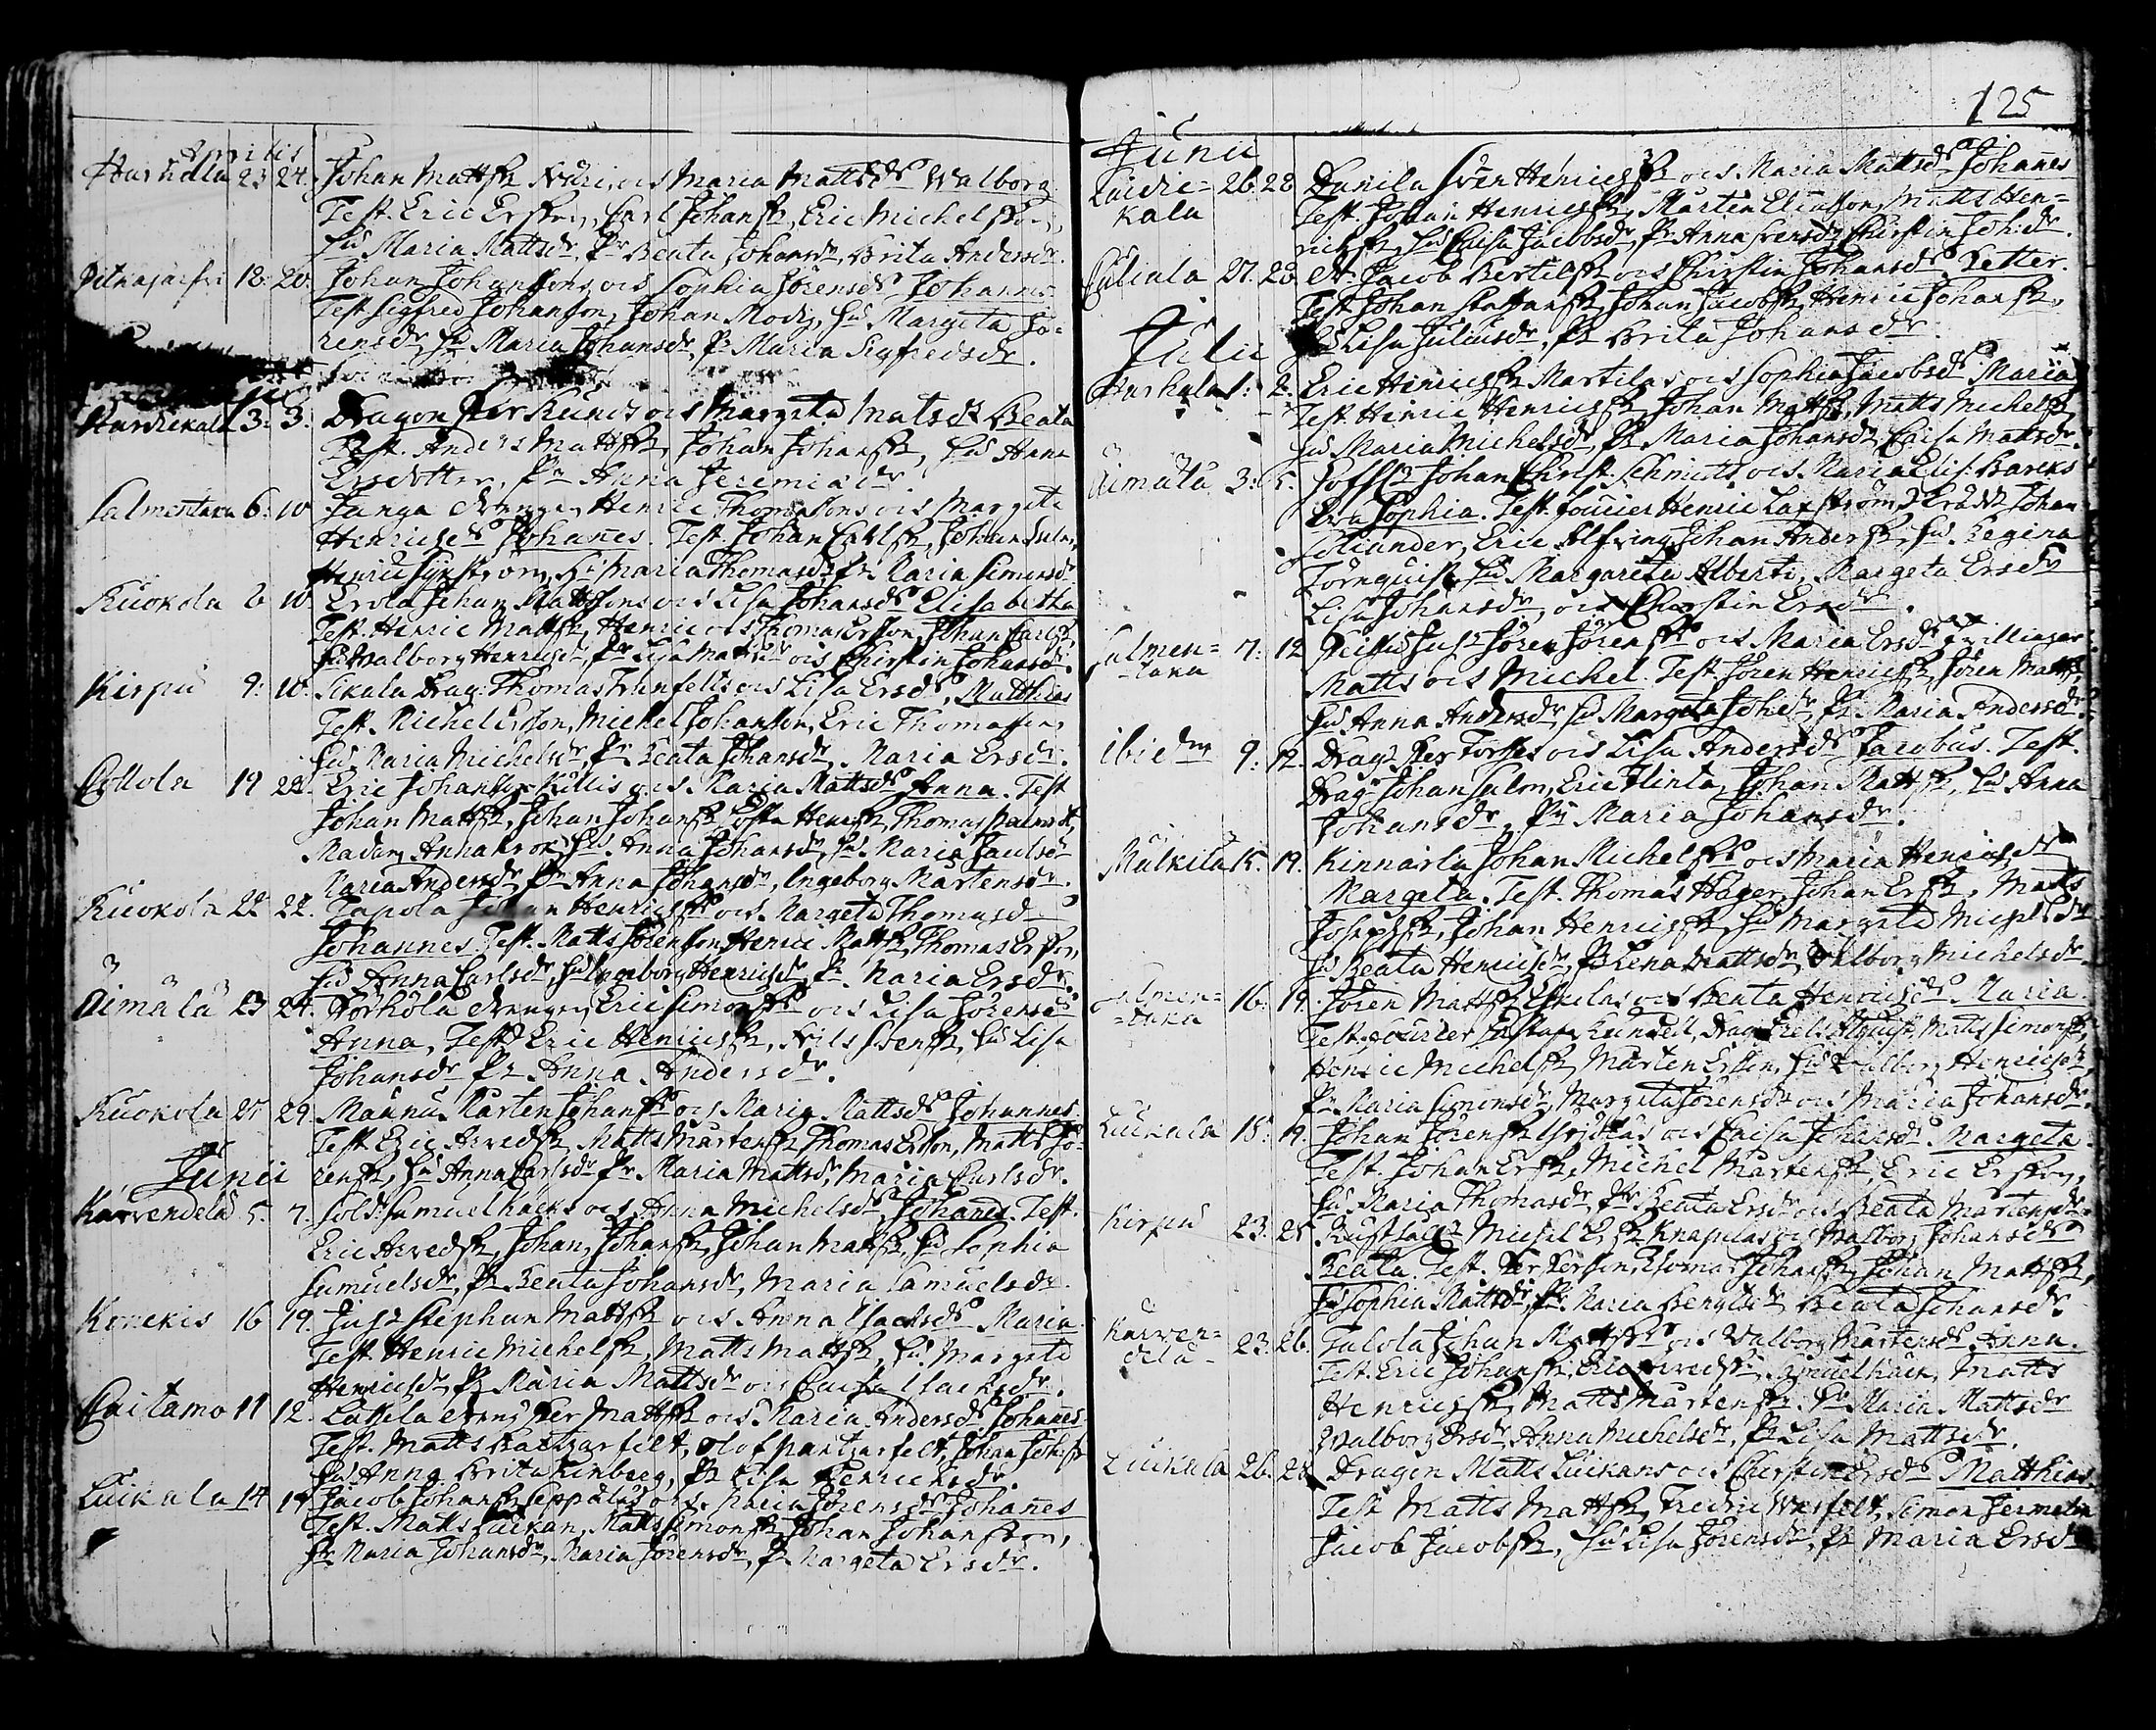 Aprilis
Hurhola 23 24. Johan Mattss Nuri, ocs Maria Mattsdr Walborg
Test. Eric Ersson, Carl Johanss, Eric Michelsson,
hu Maria Mattsdr, Pr Beata Johansdr, Brita Andersdr.
Pitkäjärfvi 18. 20. Johan Johanssons ocs Sophia Jörensdr Johannes
Test Sigfred Johanson, Johan Modig, hu Margeta Jö-
rensdr, hu Maria Johansdr, Pr Maria Sigfredsdr.
3. 3. Dragon Per Kunds ocs Margeta Matsdr Beata
Test. Anders Mattss, Johan Johanss, hu Anna
Ersdotter, Pr Anna Jeremiædr
Salmentaka 6. 10 Janga drengen Henric Thomassons ocs Margeta
Henricsdr Johannes. Test. Johan Carlss, Johan Suln,
Henric, hu Maria Thomasdr, Pr Maria Simonsdr
Kuokola 6 10. Erola Johan Mattssons ocs Lisa Johansdr Elisabetha
Test. Henric Mattss, Henric ocs Thomas Ersson, Johan Carlss
hu Walborg Henricsdr, Pr Lisa Mattsdr ocs Chirstin Johansdr.
Kirpu 9: 10. Sikala Drag: Thomas Frunfelts ocs Lisa Ersdr, Matthias
Test. Michel Ersson, Michel Johansson, Eric Thomasson,
hu Maria Michelsdr, Pr Beata Johansdr, Maria Ersdr.
Collola 19 22. Eric Johansson Killis ocs Maria Mattsdr Anna. Test
Johan Mattss, Johan Johanss, Henrss, Thomas
Madam Anna Krok, hu Anna Johansdr, hu Maria Paulsdr
Maria Andersdr, Pr Anna Johansdr, Ingeborg Mårtensdr.
Kuokola 22 22. Tapola Johan Henricss ocs Margeta Thomasdr
Johannes. Test. Matts Jörensson, Henric Mattss, Thomas Ersson,
hu Anna Carlsdr, hu Ingeborg Henricsdr, Pr Maria Ersdr.
Äimälä 23 24. Hörhölä drengen Eric Simonss ocs Lisa Jörensdr
Anna, Test Eric Henricss, Nils Svenss, hu Lisa
Johansdr Pr Anna Andersdr.
Kuokola 25 29. Maunu Mårten Johanss ocs Maria Mattsdr Johannes.
Test Eric Arvedss, Matts Mårtenss, Thomas Ersson, Matts Jö-
Junii renss, hu Anna Carlsdr Pr Maria Mattsdr, Maria Carlsdr.
Karvendelä 5. 7. Sold: Samuel Häcks ocs Anna Michelsdr, Johanes. Test.
Eric Arvedss, Johan, Johanss, Johan Mattss, hu Sophia
Samuelsdr, Pr Beata Johansdr, Maria Samuelsdr.
Konekis 16 19. Stephan Mattss ocs Anna Isacksdr Maria.
Test. Henric Michelss, Matts Mattss, hu Margeta
Henricsdr, Pr Maria Mattsdr ocs Caisa Isacksdr.
Caitamo 11 12. Lassila dreng Per Mattss ocs Maria Andersdr Johannes
Test. Matts Pantzarfelt, Olof pantzarfelt, Johan Johss
hu Anna Brita Finberg, Pr Lisa Henricsdr.
Luikala 14 17 Jacob Johanss Seppälas ocs Maria Jörensdr Johannes
Test. Matts Luikan, Matts Simonss, Johan Johansson,
hu Maria Johansdr, Maria Jörensdr, Pr Margeta Ersdr.
125
Junii
kala 26. 28 Danila Sven Henricss ocs Maria Mattsdr Johannes
Test. Johan Henricss, Mårten Eliasson, Matts Hen-
ricss, hu Caisa Jacobsdr, Pr Anna Svensdr, Chirstin Johsdr.
27. 28 Jacob Bertilss ocs Chirstin Johansdr Petter.
Test Johan Staffanss, Johan Jacobss, Henric Johanss,
hu Lisa Juliusdr, Pr Brita Johansdr
Julii
Hurhala 1: 2. Eric Henricss Martilas ocs Sophia Jacobsdr Maria
Test. Henric Henricss, Johan Mattss, Matts Michelss
hu Maria Michelsdr, Pr Maria Johansdr, Caisa Mattsdr.
Äimälä 3: 5. Johan Christ: Schmidts ocs Maria Elis: Barcks
Eva Sophia. Test. fourier Henric Laxström, Johan
Poliander, Eric Elfving, Johan Anderss, hu Regina
Törnquist, hu Margareta Alberti, Margeta Ersdr
Lisa Johansdr, ocs Chirstin Ersdr.
Salmen- 7: 12 Sören Sörenss ocs Maria Ersdr Twillingar
-taka Matts ocs Michel. Test. Jören Henricss, Jören Mattss,
hu Anna Andersdr, hu Margeta Johsdr, Pr Maria Andersdr.
ibidem 9: 12. Drag: Per Forsses ocs Lisa Andersdr Jacobus. Test.
Drag: Johan Salon, Eric Flinta, Johan Mattss, hu Anna
Johansdr, Pr Maria Johansdr.
Mulkila 15. 19. Kinnarla Johan Michelss ocs Maria Henricsdr
Margeta. Test. Thomas Häger, Johan Erss, Matts
Josephss, Johan Henricss, hu Margeta Michelsdr
hu Beata Henricsdr, Pr Lena Mattsdr, Walborg Michelsdr.
Salmen- 16: 19. Jören Mattss Eskilas ocs Beata Henricsdr Maria.
-taka Test. fourier Gustaf Kundell, Drag: Matts Simonss,
Henric Michelss, Mårten Ersson, hu Walborg Henricsdr,
Pr Maria Simonsdr, Margeta Jörensdr ocs Maria Johansdr.
Luikala 18: 19. Johan Jörenss ocs Caisa Johansdr. Margeta.
Test. Johan Erss, Michel Mårtenss, Eric Ersson,
hu Maria Thomasdr, Pr Beata Ersdr ocs Beata Mårtensdr.
Kirpu 23. 25 Michel Erss Knapilas ocs Walborg Johansdr
Beata. Test. Per Persson, Thomas Johanss, Johan Mattss,
hu Sophia Mattsdr, Pr Maria Bengtsdr, Beata Johansdr.
Karven- 23. 26. Talola Johan Mattss ocs Walborg Mårtensdr. Anna.
delä Test. Eric Johanss, Eric Arvedss, Samuel Häck, Matts
Henricss, Matts Mårtenss. hu Maria Mattsdr
Walborg Ersdr, Anna Michelsdr, Pr Lisa Mattsdr.
Luikala 26. 28 Dragon Matts Luikans ocs Chirstin Ersdr Matthias.
Test Matts Mattss, Fredric Werfelt, Simon
Jacob Jacobss, hu Lisa Jörensdr, Pr Maria Ersdr